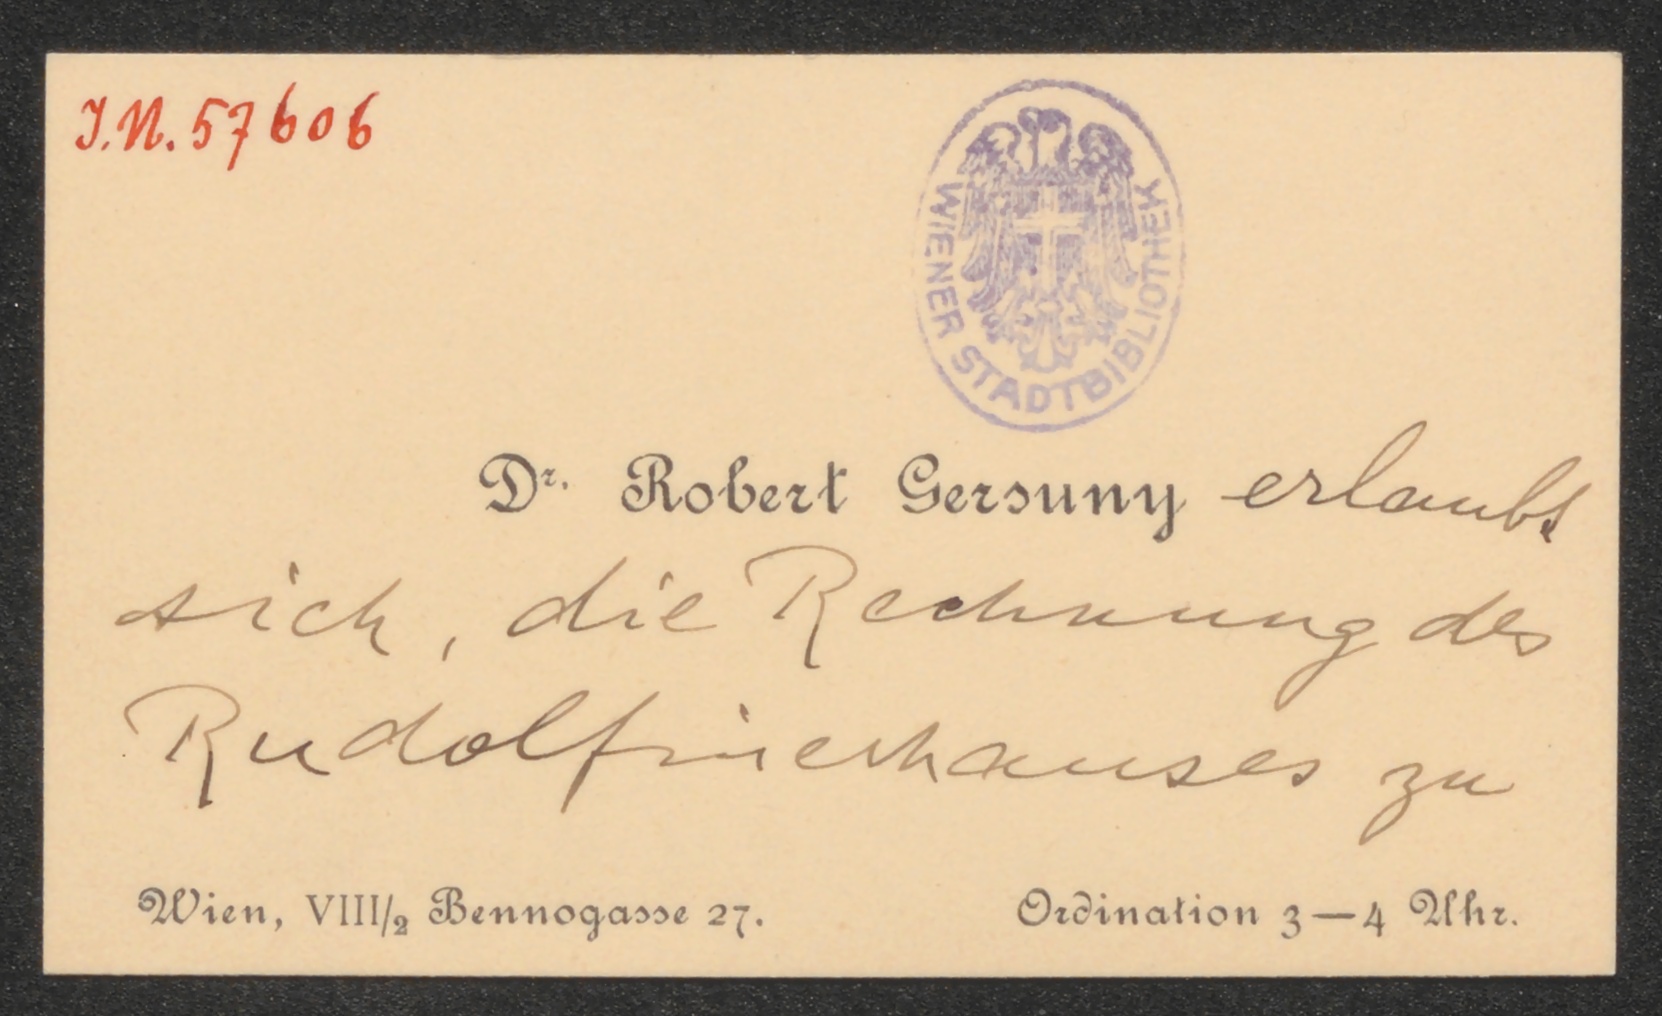 J.N. 57606
WIENER STADTBIBLIOTHEK
Dr. Robert Gersuny erlaubt
sich, die Rechnung des
Rudolfinerhauses zu
Wien, VIII/2 Bennogasse 27.
Ordination 3—4 Uhr.